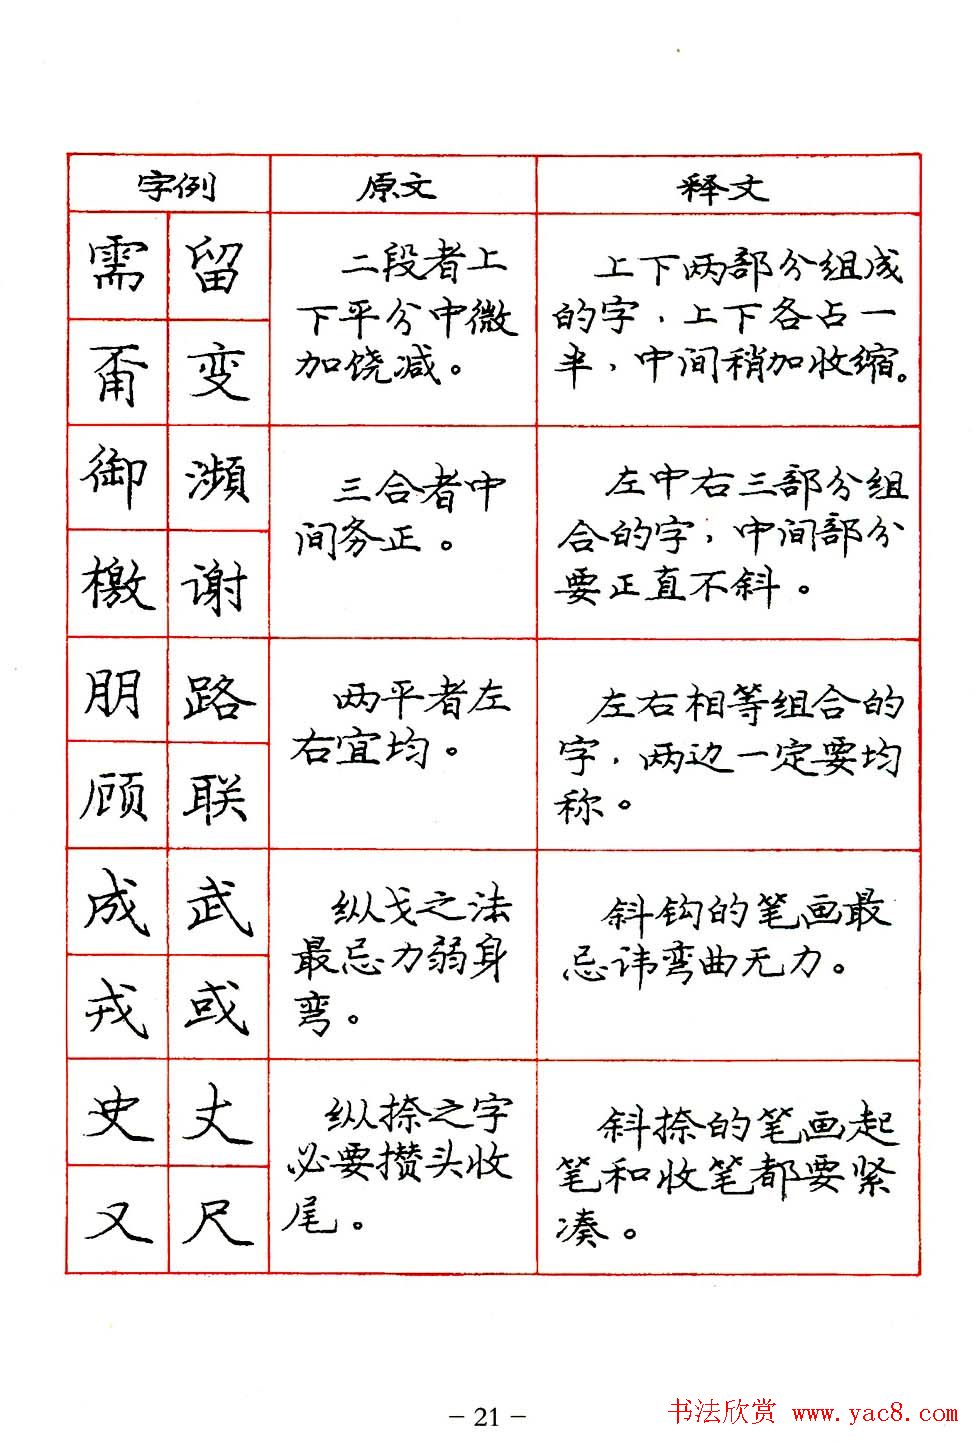 字例 原文 释文
需 留
甭 变
二段者上
下平分中微
加饶减。
上下两部分组成
的字，上下各占一
半，中间稍加收缩。
御 瀕
檄 谢
三合者中
间务正。
左中右三部分组
合的字，中间部分
要正直不斜。
朋 路
顾 联
两平者左
右宜均。
左右相等组合的
字，两边一定要均
称。
成 武
戎 或
纵戈之法
最忌力弱身
弯。
斜钩的笔画最
忌讳弯曲无力。
史 丈
又 尺
纵捺之字
必要攒头收
尾。
斜捺的笔画起
笔和收笔都要紧
凑。
- 21 -
书法欣赏 www.yac8.com